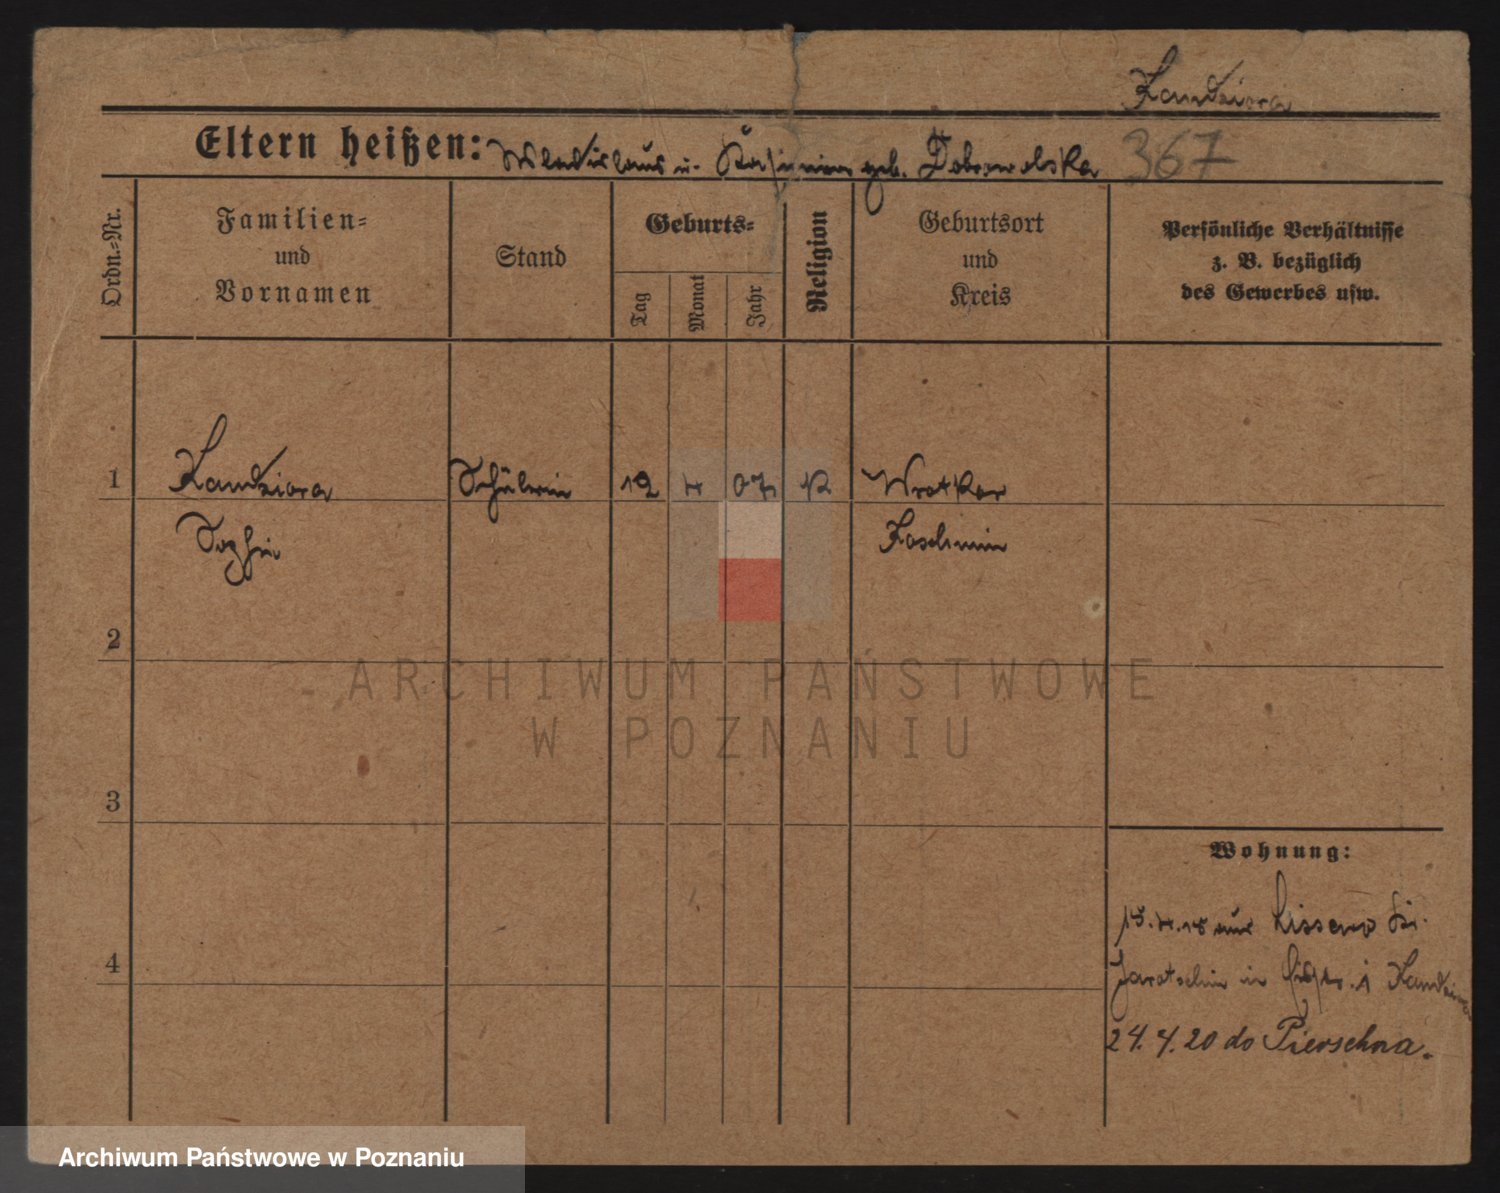 Kandziora
Eltern heißen: Wladislaus u. Kasimira geb. Dobrowolska 367
Ordn.=Nr.
Familien=
und
Vornamen
Stand
Geburts=
Tag
Monat
Jahr
Religion
Geburtsort
und
Kreis
Persönliche Verhältnisse
z. B. bezüglich
des Gewerbes usw.
1 Kandziora Schülerin 12 4 07 K Wrotkow
Sophie Koschmin
2
3
4
Wohnung:
15.4.18 aus Lissewo Kr.
Jarotschin in 1 Kandziora
24.4.20 do Pierschna.
ARCHIWUM PAŃSTWOWE
W POZNANIU
Archiwum Państwowe w Poznaniu